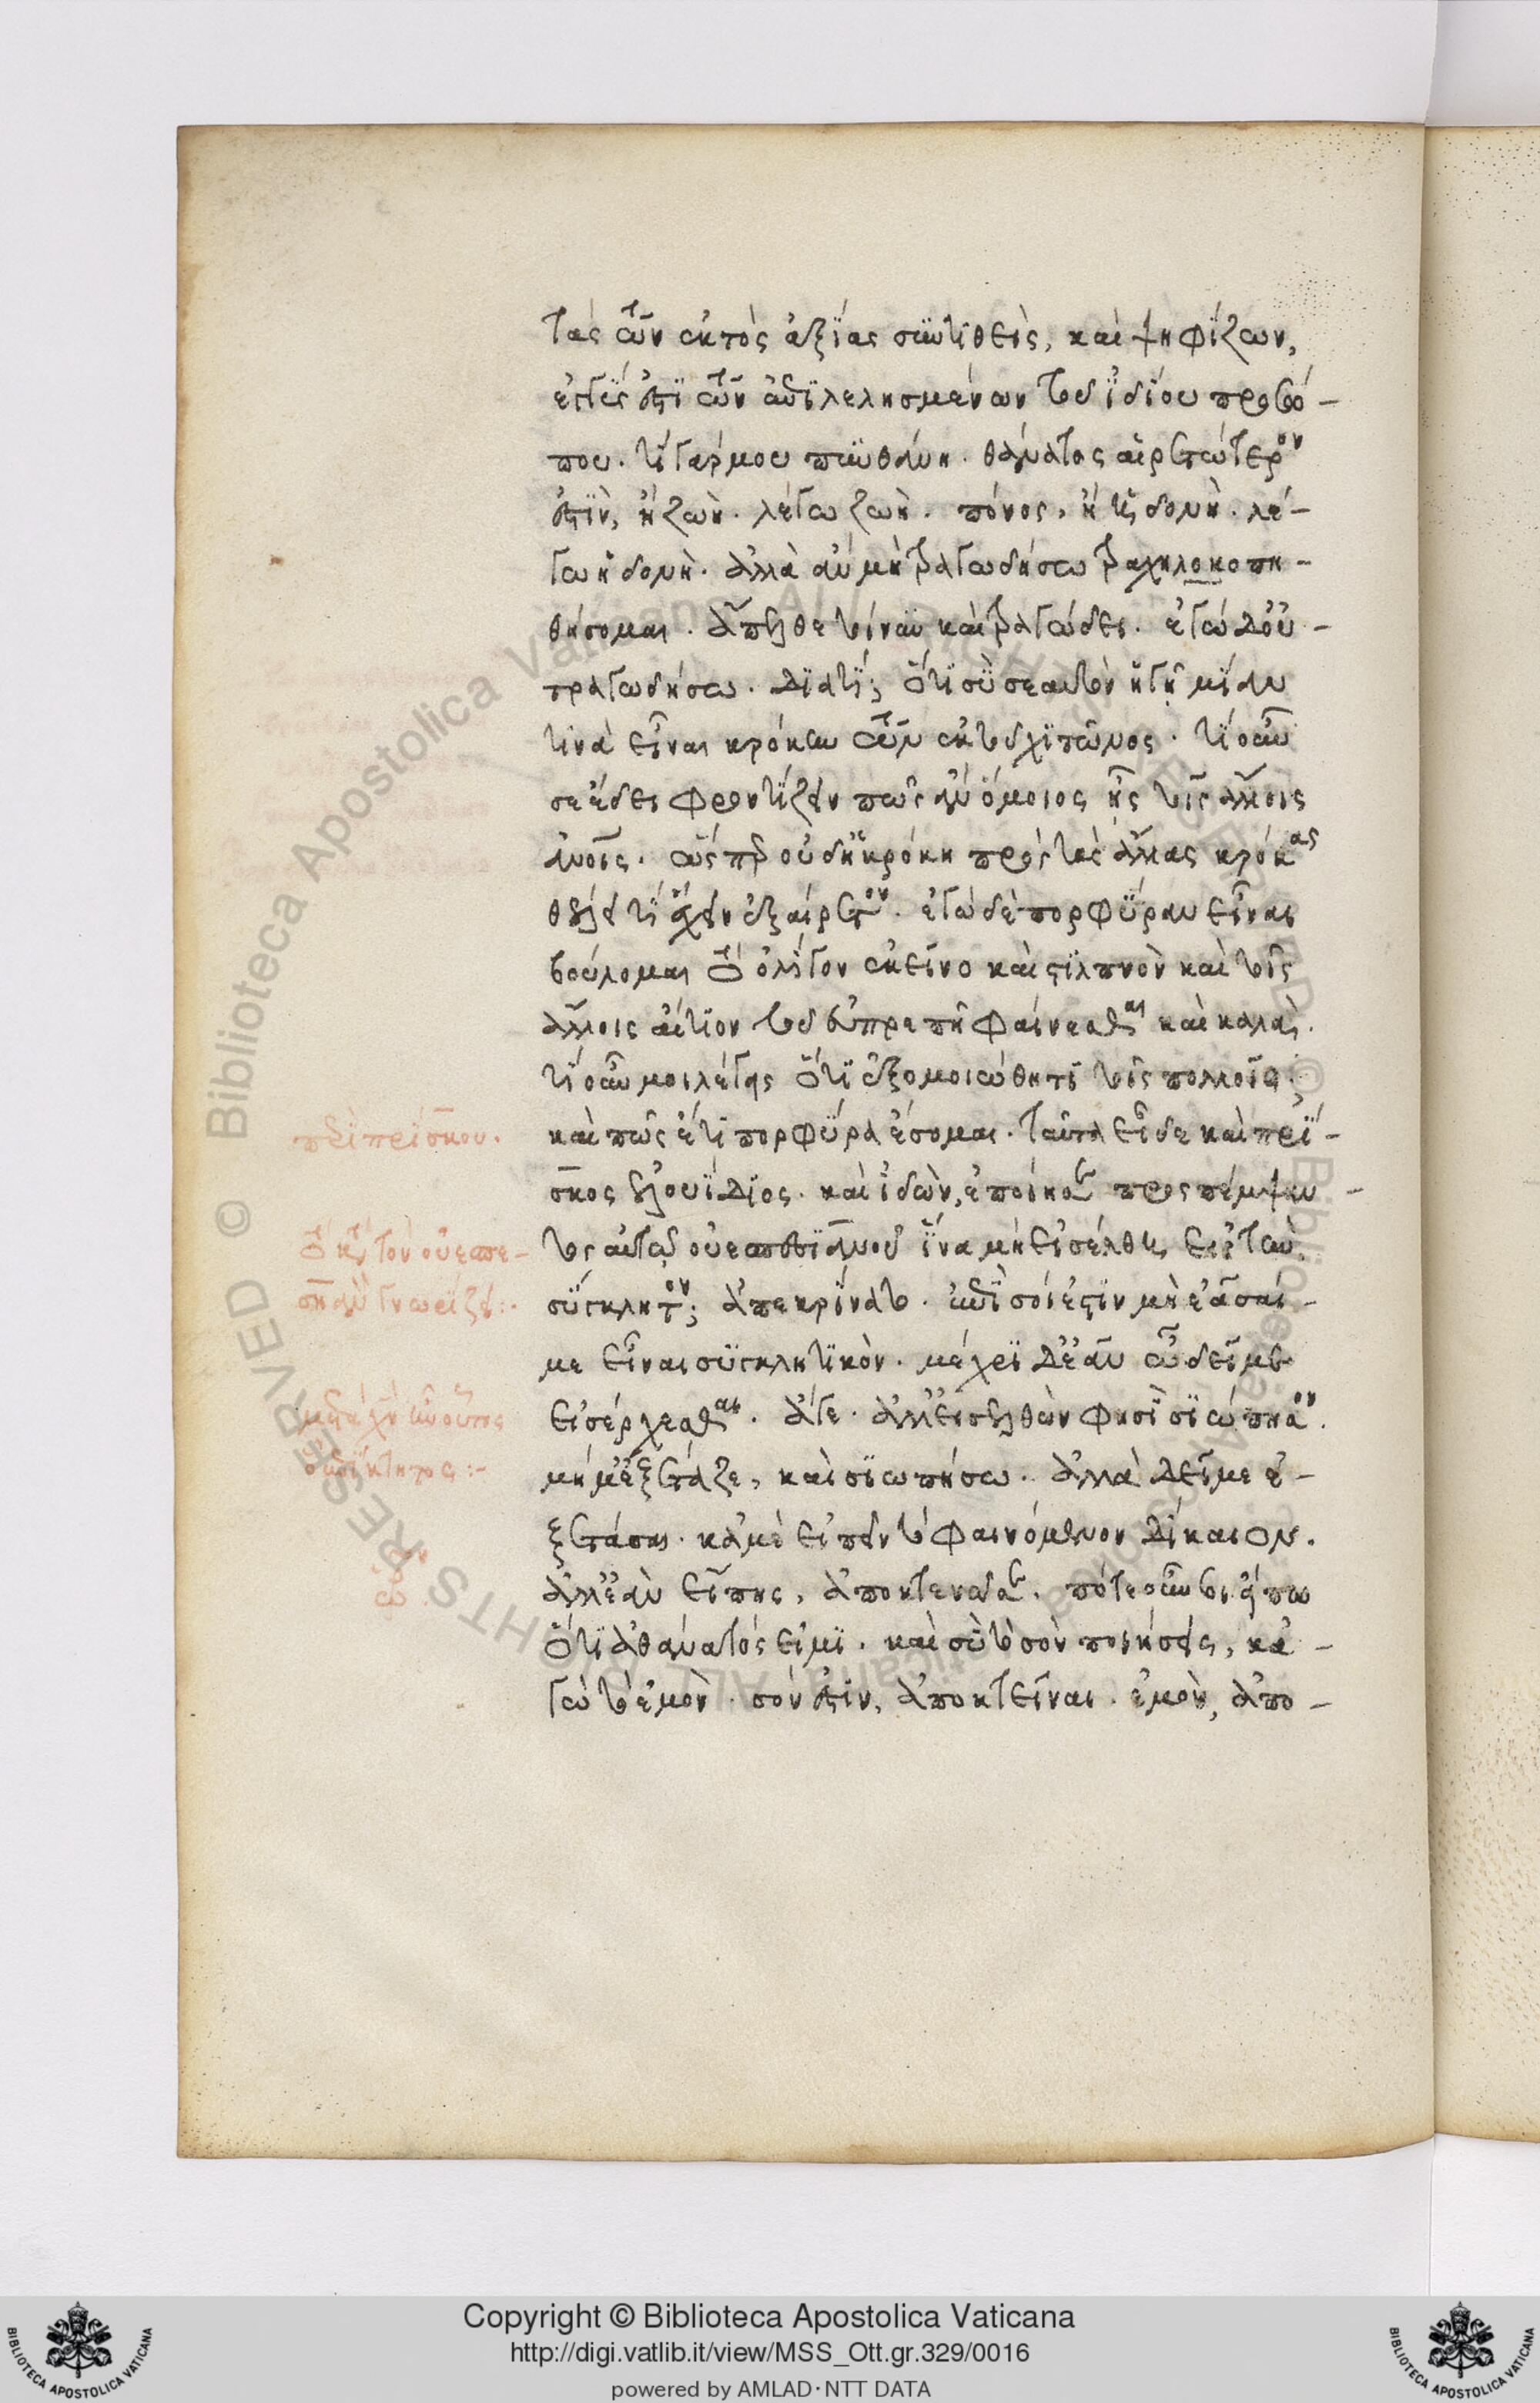 τὰς τῶν ἐκτὸς ἀξίας συντιθεὶς, καὶ ψηφίζων,
ἐγγύς ἐστι τῶν ἐπιλελησμένων τοῦ ἰδίου προσώ-
που. τί γάρ μου πυνθάνη. θάνατος αἱρετώτερον
ἐστὶν, ἢ ζωὴ. λέγω ζωὴ. πόνος, ἢ ἡδονὴ. λέ-
γω ἡδονὴ. ἀλλὰ ἂν μὴ τραγωδήσω τραχηλοκοπη-
θήσομαι. ἄπελθε τοίνυν καὶ τραγώδει. ἐγὼ δ' οὐ
τραγωδήσω. διατί; ὅτι σὺ σεαυτὸν ἡγῇ μίαν
τινὰ εἶναι κρόκην τῶν ἐκ τοῦ χιτῶνος. τί οὖν
σε ἔδει φροντίζειν πῶς ἂν ὅμοιος ᾖς τοῖς ἄλλοις
ἀνοις. ὥσπερ οὐδ' ἡ κρόκη πρὸς τὰς ἄλλας κρόκας
θέλει τί ἔχειν ἐξαίρετον. ἐγὼ δὲ πορφύραν εἶναι
βούλομαι τὸ ὀλίγον ἐκεῖνο καὶ στιλπνὸν καὶ τοῖς
ἄλλοις αἴτιον τοῦ εὐπρεπῆ φαίνεσθαι καὶ καλὰ.
τί οὖν μοι λέγεις ὅτι ἐξομοιώθητι τοῖς πολλοῖς;
καὶ πῶς ἔτι πορφύρα ἔσομαι. ταῦτα εἶδε καὶ πρί-
σκος ἑλουίδιος. καὶ ἰδὼν, ἐποίησε προσπέμψαν-
τος αὐτῷ οὐεσπασιανοῦ ἵνα μὴ εἰσέλθη εἰς τὴν
σύγκλητον; ἀπεκρίνατο. ἐπὶ σοί ἐστιν μὴ ἐᾶσαί
με εἶναι συγκλητικὸν. μέχρι δὲ ἂν ὦ δεῖ με
εἰσέρχεσθαι. ἄγε. ἀλλ' εἰσελθὼν φησὶ σιώπησον.
μή μ' ἐξέταζε, καὶ σιωπήσω. ἀλλὰ δεῖ με ἐ-
ξετάσαι. κἀμὲ εἰπεῖν τὸ φαινόμενον δίκαιον.
ἀλλ' ἐὰν εἴπης, ἀποκτενῶ σε. πότε οὖν σοι εἶπον
ὅτι ἀθάνατός εἰμι. καὶ σὺ τὸ σὸν ποιήσεις, κἀ-
γὼ τὸ ἐμὸν. σόν ἐστιν, ἀποκτεῖναι. ἐμὸν, ἀπο-
περὶ πρίσκου.
τὸ κατὰ τὸν οὐεσπε-
σιανὸν γνωρίζει:-
Copyright © Biblioteca Apostolica Vaticana
http://digi.vatlib.it/view/MSS_Ott.gr.329/0016
powered by AMLAD·NTT DATA